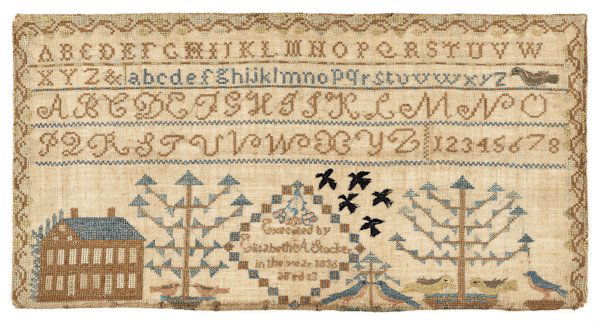 ABCDEFGHIJKLMNOPQRSTUVW
XYZ&abcdefghijklmnopqrstuvwxyz
ABCDEFGHIJKLMNO
PQRSTUVWXYZ 12345678
Executed by
Elizabeth A
in the year 1836
aged 13